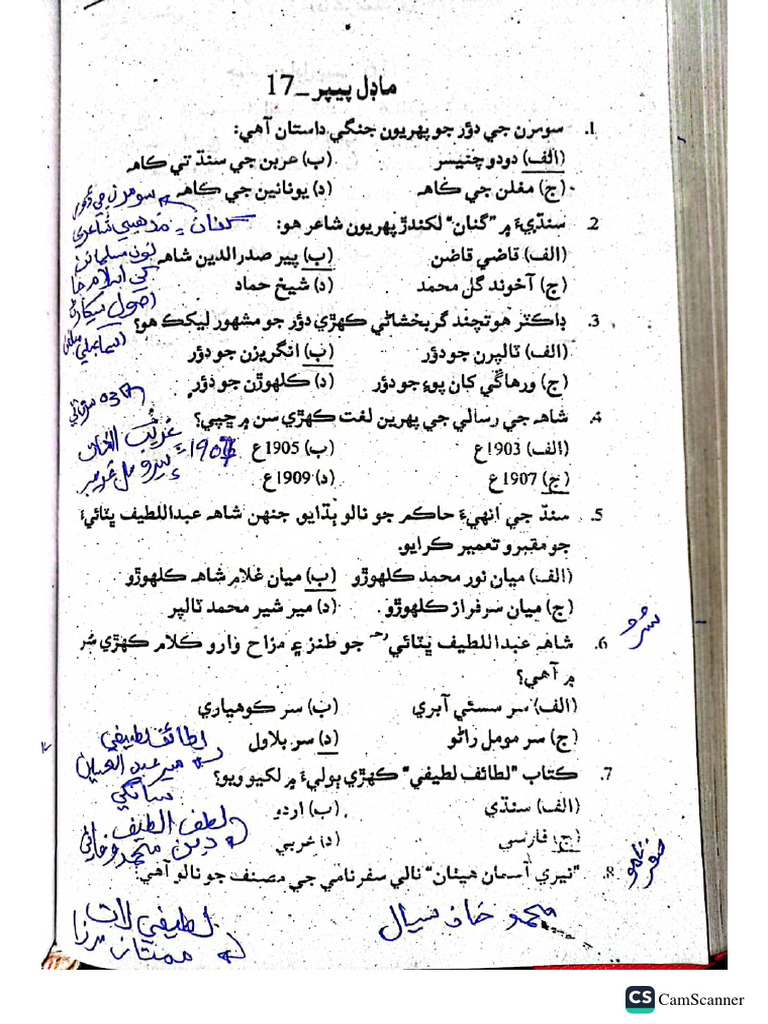 ماڊل پيپر _17
1. سومرن جي دؤر جو پهريون جنگي داستان آهي:
(الف) دودو چنيسر (ب) عربن جي سنڌ تي ڪاهه
(ج) مغلن جي ڪاهه (د) يونانين جي ڪاهه
2. سنڌيءَ ۾ "گنان" لکندڙ پهريون شاعر هو:
(الف) قاضي قاضن (ب) پير صدرالدين شاهه
(ج) آخوند گل محمد (د) شيخ حماد
3. ڊاڪٽر هوتچند گربخشاڻي ڪهڙي دؤر جو مشهور ليکڪ هو؟
(الف) ٽالپرن جو دؤر (ب) انگريزن جو دؤر
(ج) ورهاڱي کان پوءِ جو دؤر (د) ڪلهوڙن جو دؤر
4. شاهه جي رسالي جي پهرين لغت ڪهڙي سن ۾ ڇپي؟
(الف) 1903ع (ب) 1905ع
(ج) 1907ع (د) 1909ع
5. سنڌ جي انهيءَ حاڪم جو نالو ٻڌايو جنهن شاهه عبداللطيف ڀٽائيءَ
جو مقبرو تعمير ڪرايو.
(الف) ميان نور محمد ڪلهوڙو (ب) ميان غلام شاهه ڪلهوڙو
(ج) ميان سرفراز ڪلهوڙو. (د) مير شير محمد ٽالپر
6. شاهه عبداللطيف ڀٽائيؒ جو طنز ۽ مزاح وارو ڪلام ڪهڙي سُر
۾ آهي؟
(الف) سر سسئي آبري (ب) سر ڪوهياري
(ج) سر مومل راڻو (د) سر بلاول
7. ڪتاب "لطائف لطيفي" ڪهڙي ٻوليءَ ۾ لکيو ويو؟
(الف) سنڌي (ب) اردو
(ج) فارسي (د) عربي
8. "نيري آسمان هيٺان" نالي سفرنامي جي مصنف جو نالو آهي:
گنان = مذهبي شاعري
نون مسلمانن
کي اسلام جا
اصول سيکارڻ
1907ع
لطائف لطيفي
مير عبدالحسين
سانگي
لطف اللطيف
دين محمد وفائي
لطيفي لات
ممتاز مرزا
محمود خان سيال
CamScanner